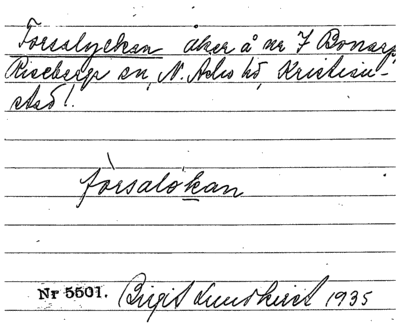 Forsalyckan åker å nr 7 Bonarp,
Riseberga sn, N. Åsbo hd, Kristian-
stad l.
fòrsalökan
Nr 5501. Birgit Lundkvist 1935